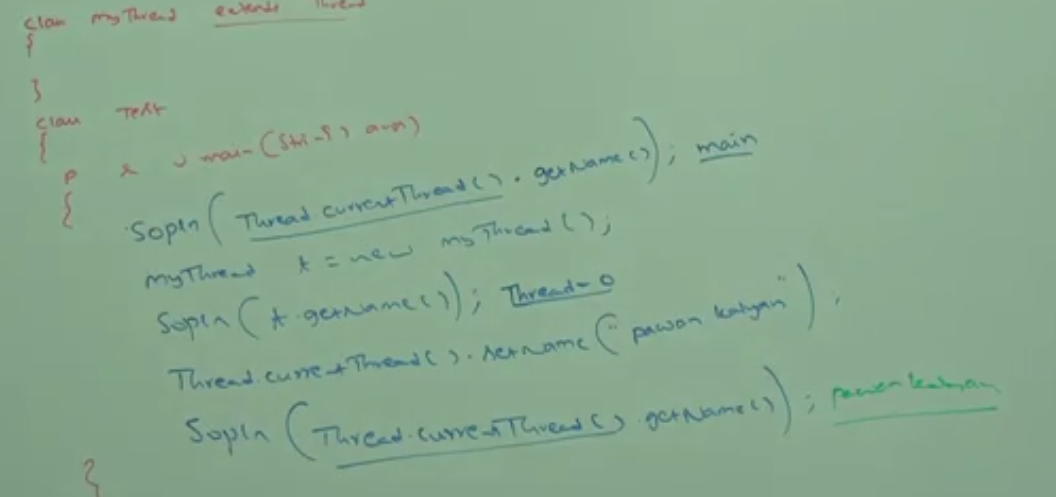 class myThread extends Thread
{
}
class Test
{
p s v main(String[] args)
{
Sopln(Thread.currentThread().getName()); main
myThread t = new myThread();
Sopln(t.getName()); Thread-0
Thread.currentThread().setName("pawan kalyan");
Sopln(Thread.currentThread().getName()); pawan kalyan
}